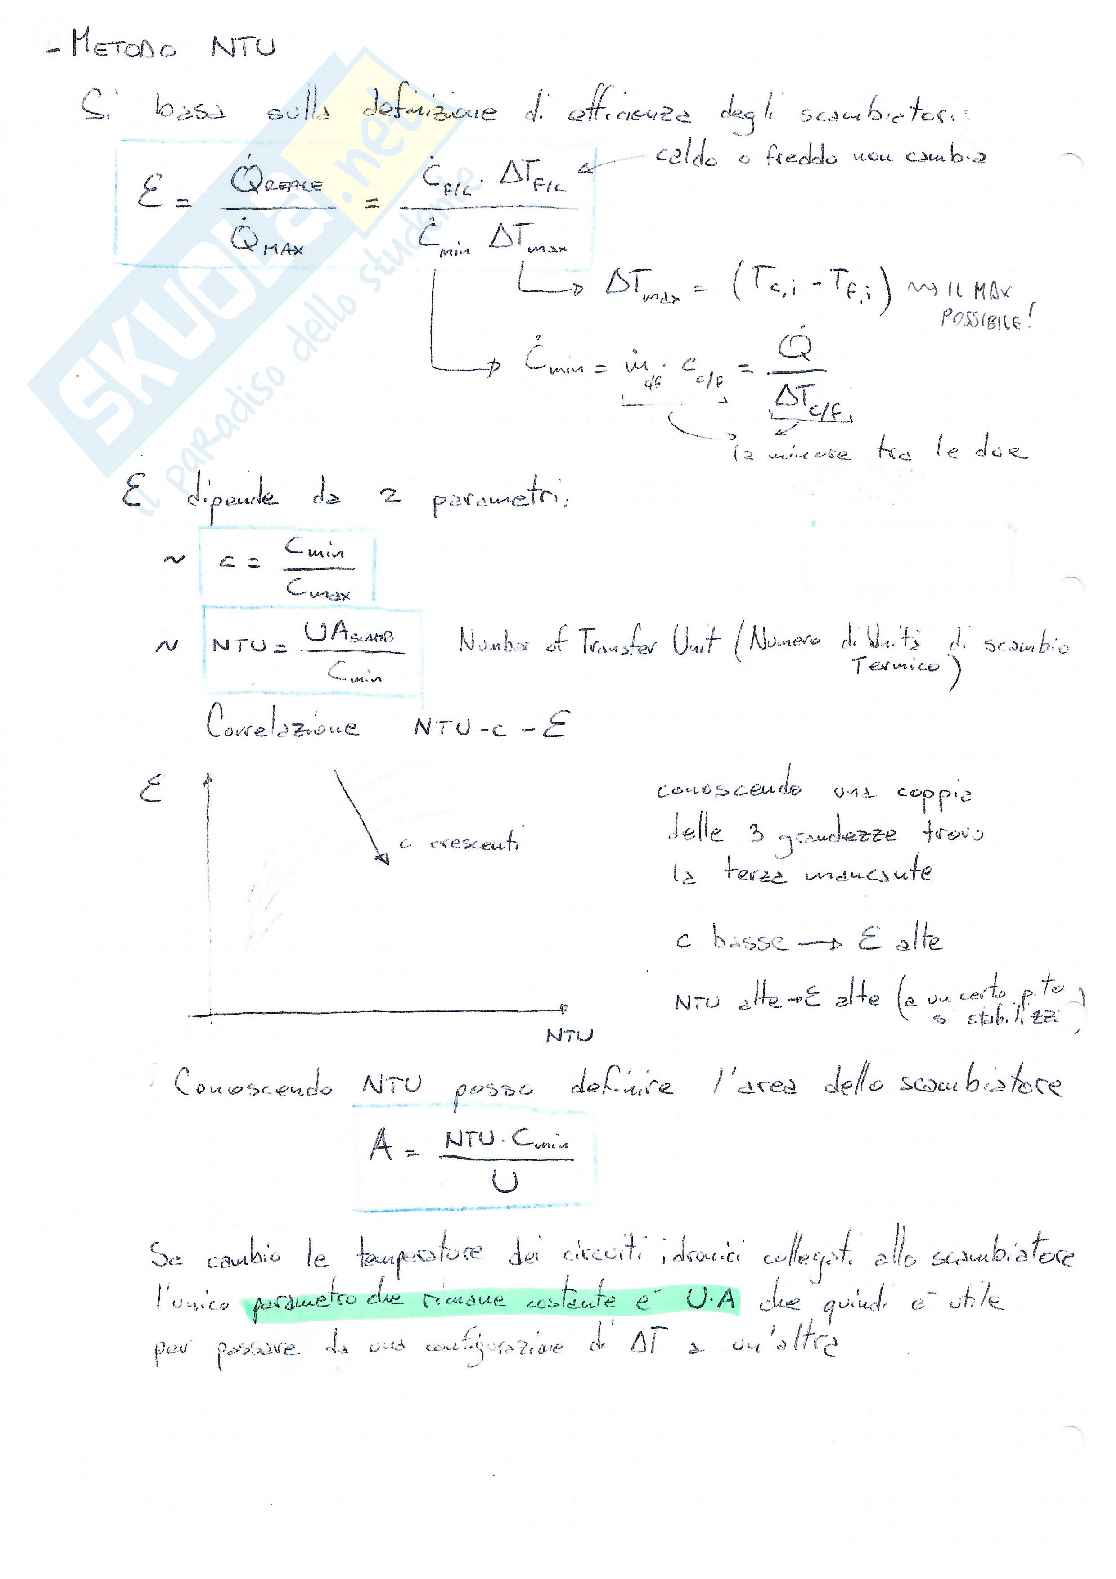 - METODO NTU
Si basa sulla definizione di efficienza degli scambiatori:
ε = Q̇REALE / Q̇MAX = ĊF/C · ΔTF/C / Ċmin ΔTmax
caldo o freddo non cambia
ΔTmax = (Tc,i - TF,i) ~> IL MAX POSSIBILE!
Ċmin = ṁc/F · cc/F = Q̇ / ΔTC/F
la minore tra le due
ε dipende da 2 parametri:
~ c = Cmin / Cmax
~ NTU = UASCAMB / Cmin Number of Transfer Unit (Numero di Unità di scambio Termico)
Correlazione NTU-c-ε
ε
c crescenti
NTU
conoscendo una coppia
delle 3 grandezze trovo
la terza mancante
c basse → ε alte
NTU alte → ε alte (a un certo p.to si stabilizza)
Conoscendo NTU posso definire l'area dello scambiatore
A = NTU · Cmin / U
Se cambio le temperature dei circuiti idronici collegati allo scambiatore
l'unico parametro che rimane costante è U·A che quindi è utile
per passare da una configurazione di ΔT a un'altra
SKUOLA.net
il paradiso dello studente